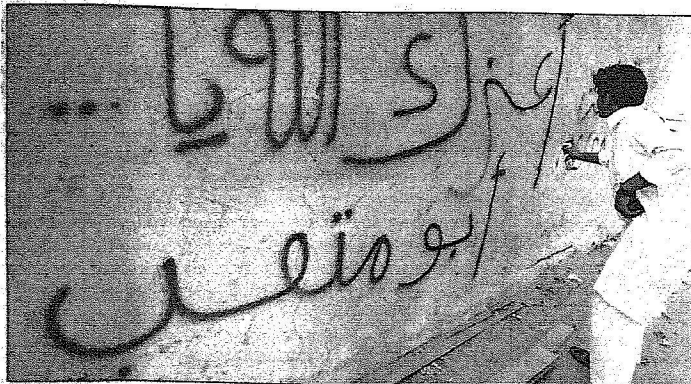 أعزك الله يا ...
أبو متعب